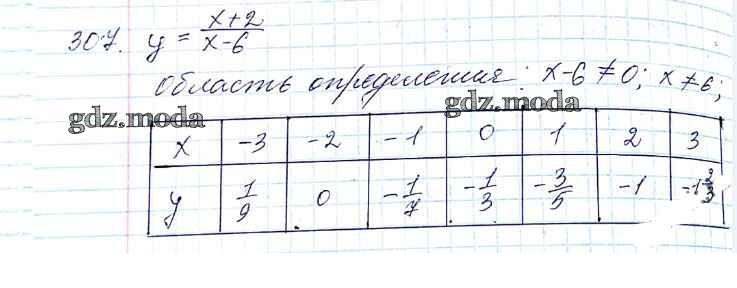 307. y = (x+2)/(x-6)
область определения: x-6≠0; x≠6;
gdz.moda
gdz.moda
x -3 -2 -1 0 1 2 3
y 1/9 0 -1/7 -1/3 -3/5 -1 -1 2/3